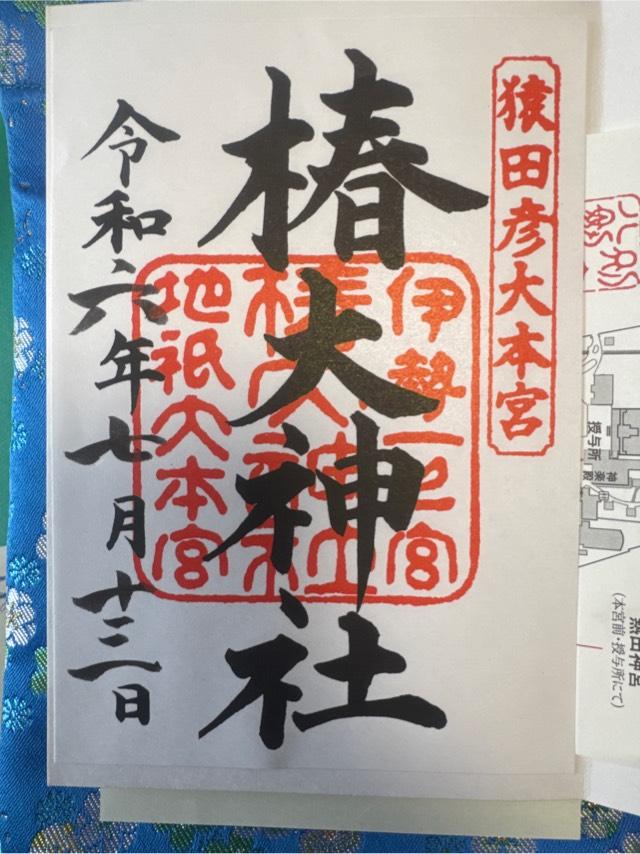 猿田彦大本宮
椿大神社
伊勢一之宮
椿大神社
地祇大本宮
令和六年七月十三日
授与所
神楽殿
熱田神宮
(本宮前・授与所にて)